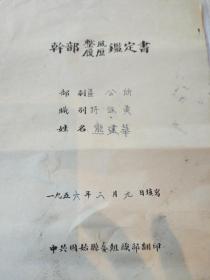 幹部 整風 鑑定書
履歷
部别 區公所
職别
姓名 熊建華
一九五六年二月九日填寫
中共固始縣委組織部翻印